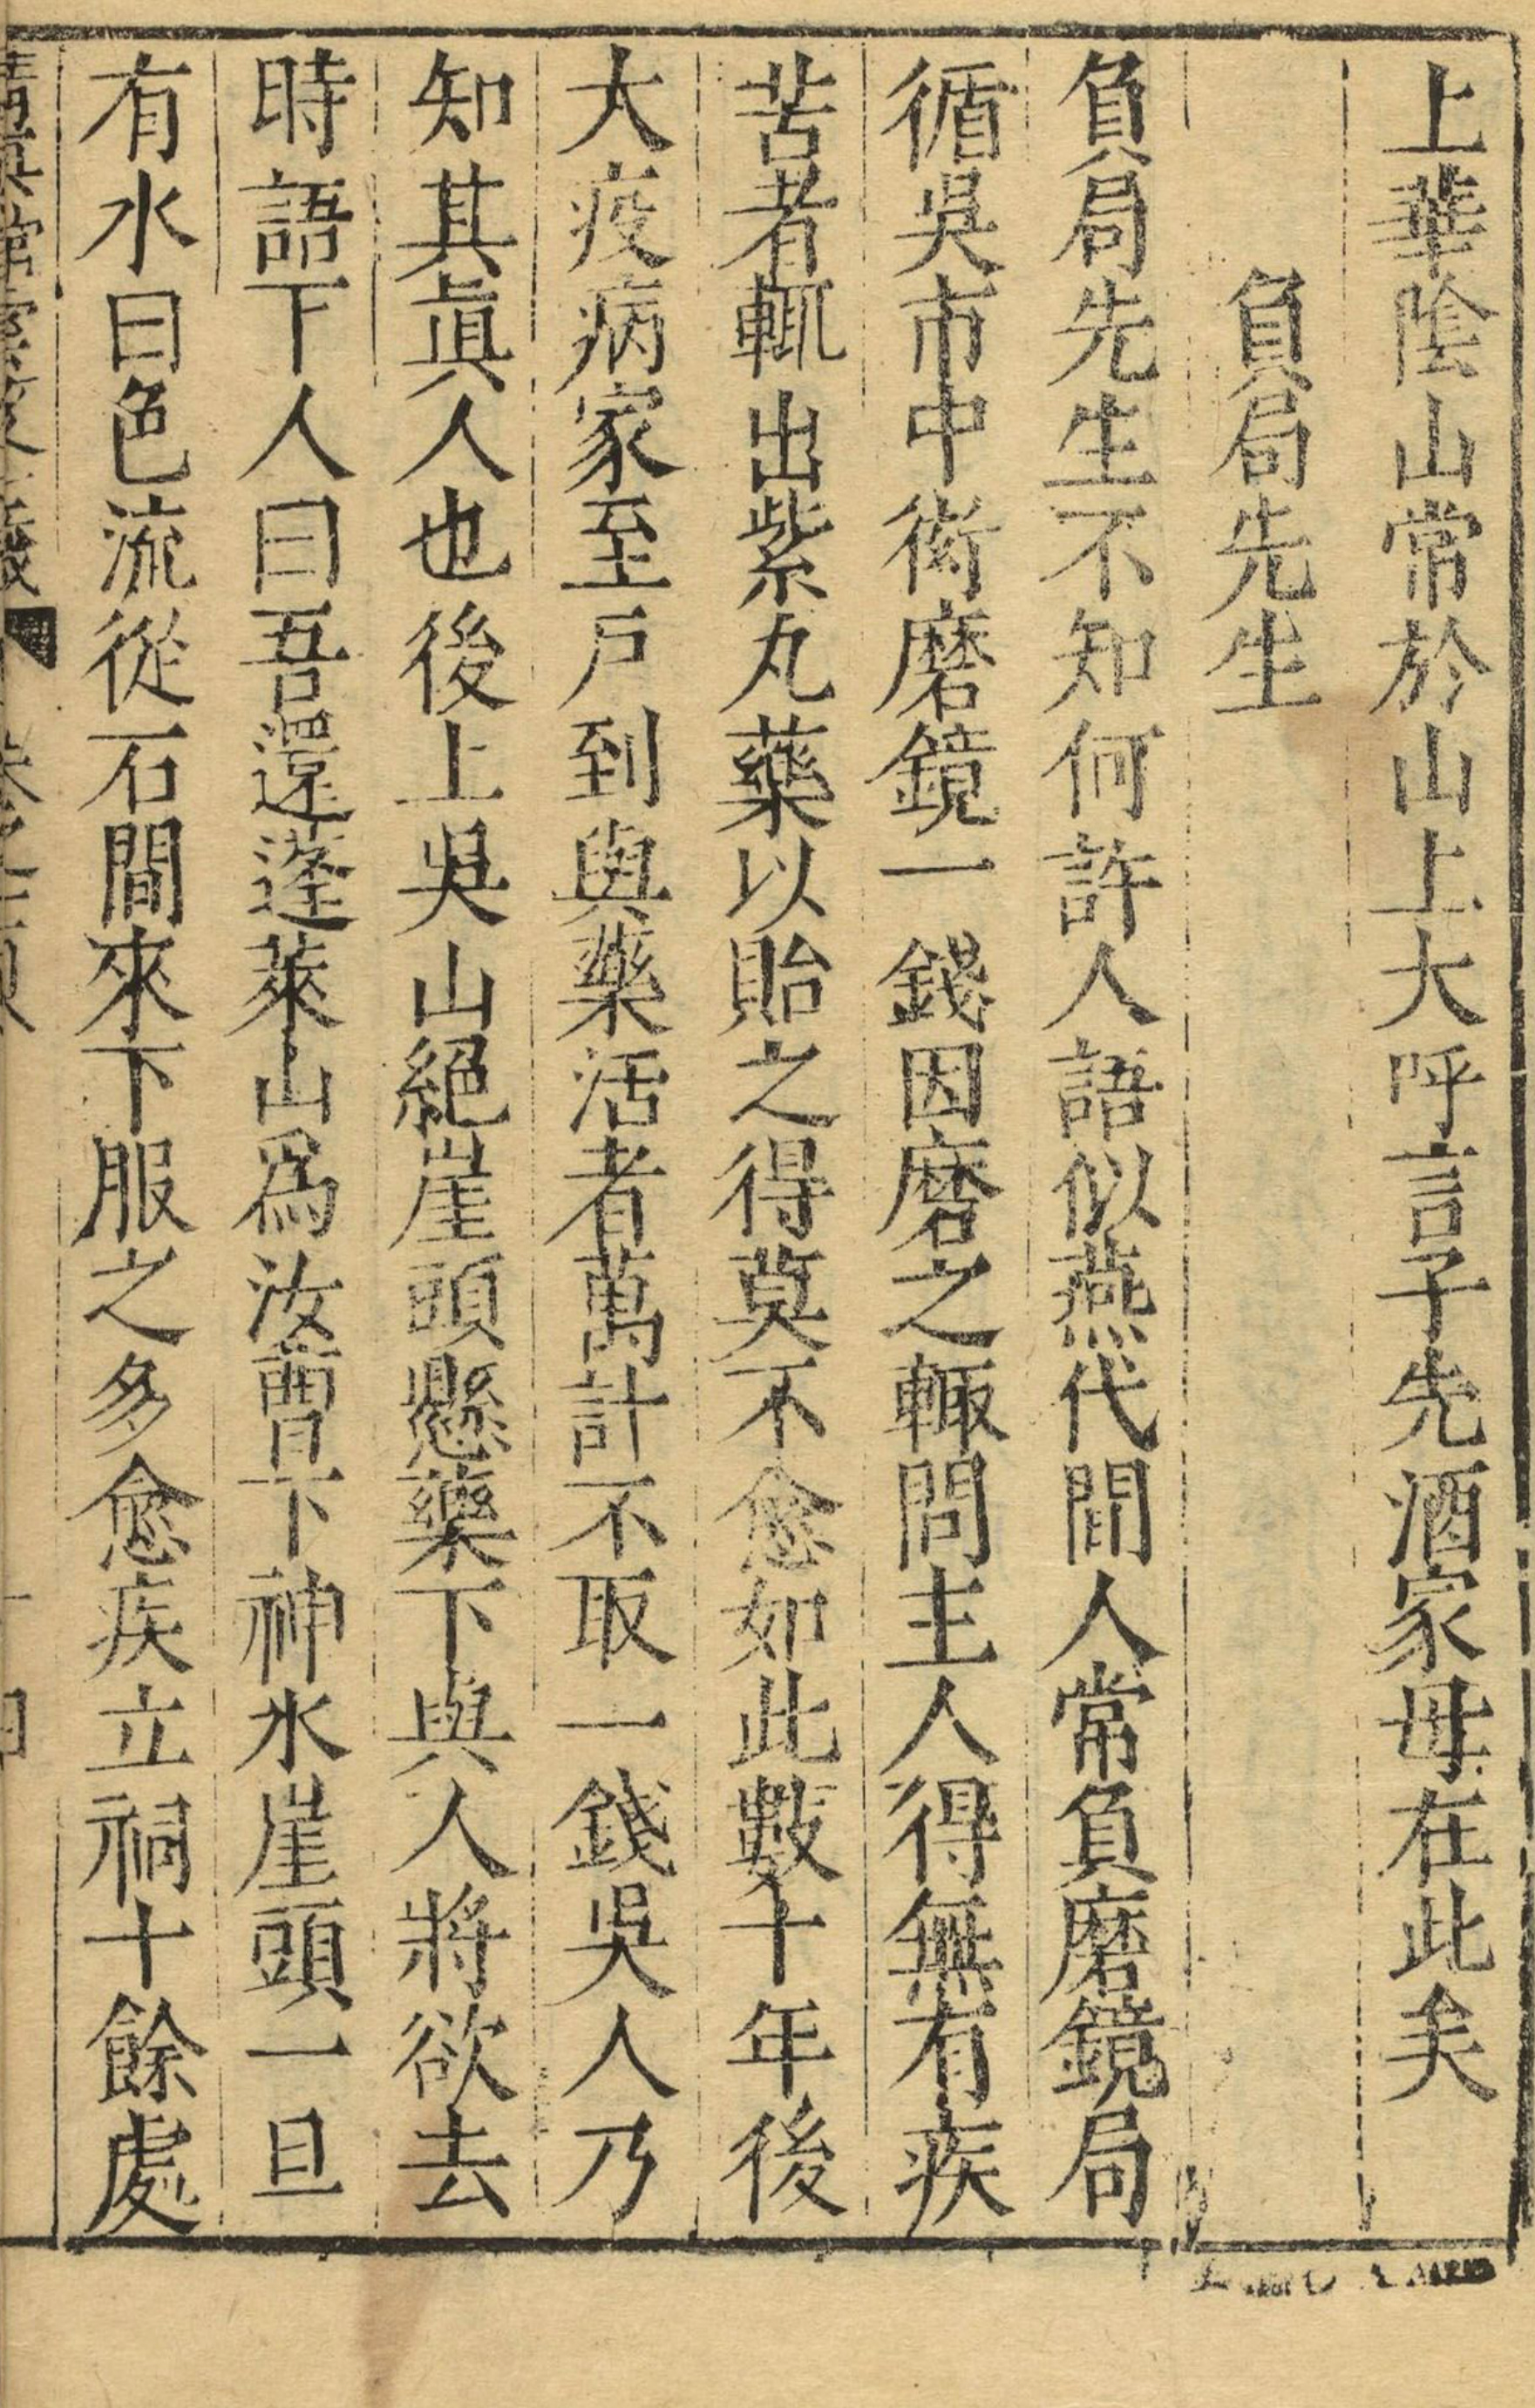 上華陰山常於山上大呼言子先酒家母在此矣
負局先生
負局先生不知何許人語似燕代間人常負磨鏡局
循吳市中衒磨鏡一錢因磨之輙問主人得無有疾
苦者輒出紫丸藥以貽之得莫不愈如此數十年後
大疫病家至戸到與藥活者萬計不取一錢吳人乃
知其眞人也後上吳山絕崖頭懸藥下與人將欲去
時語下人曰吾還蓬萊山爲汝曹下神水崖頭一旦
有水曰色流從石間來下服之多愈疾立祠十餘處